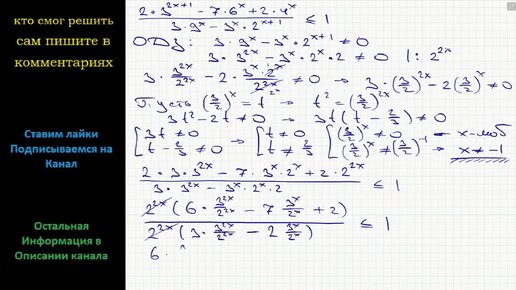 кто смог решить
сам пишите в
комментариях
Ставим лайки
Подписываемся на
Канал
Остальная
Информация в
Описании канала
2·3^(2x+1) − 7·6^x + 2·4^x / 3·9^x − 3^x·2^(x+1) ≤ 1
ОДЗ: 3·9^x − 3^x·2^(x+1) ≠ 0
3·3^(2x) − 3^x·2^x·2 ≠ 0 |: 2^(2x)
3·3^(2x)/2^(2x) − 2·3^x·2^x/2^(2x) ≠ 0 → 3·(3/2)^(2x) − 2(3/2)^x ≠ 0
Пусть (3/2)^x = t → t² = (3/2)^(2x)
3t² − 2t ≠ 0 → 3t(t − 2/3) ≠ 0
[3t ≠ 0 → [t ≠ 0 → [(3/2)^x ≠ 0 — x − люб
[t − 2/3 ≠ 0 [t ≠ 2/3 [(3/2)^x ≠ (3/2)^(−1) → x ≠ −1
2·3·3^(2x) − 7·3^x·2^x + 2·2^(2x) / 3·3^(2x) − 3^x·2^x·2 ≤ 1
2^(2x)(6·3^(2x)/2^(2x) − 7 3^x/2^x + 2) / 2^(2x)(3·3^(2x)/2^(2x) − 2 3^x/2^x) ≤ 1
6·